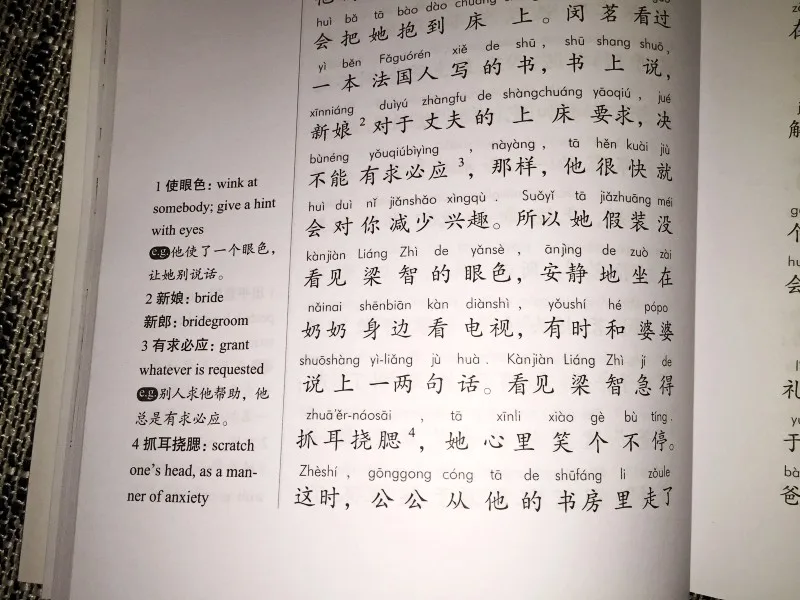 huì bǎ tā bào dào chuáng shang
会把她抱到床上。闵茗看过
yì běn Fǎguórén xiě de shū, shū shang shuō,
一本法国人写的书，书上说，
xīnniáng duìyú zhàngfu de shàngchuáng yāoqiú, jué
新娘2对于丈夫的上床要求，决
bùnéng yǒuqiúbìyìng, nàyàng, tā hěn kuài jiù
不能有求必应3，那样，他很快就
huì duì nǐ jiǎnshǎo xìngqù. Suǒyǐ tā jiǎzhuāng méi
会对你减少兴趣。所以她假装没
kànjiàn Liáng Zhì de yǎnsè, ānjìng de zuò zài
看见梁智的眼色，安静地坐在
nǎinai shēnbiān kàn diànshì, yǒushí hé pópo
奶奶身边看电视，有时和婆婆
shuōshàng yì-liǎng jù huà. Kànjiàn Liáng Zhì jí de
说上一两句话。看见梁智急得
zhuā'ěr-náosāi, tā xīnli xiào gè bù tíng.
抓耳挠腮4，她心里笑个不停。
Zhèshí, gōnggong cóng tā de shūfáng li zǒule
这时，公公从他的书房里走了
1 使眼色: wink at
somebody; give a hint
with eyes
e.g 他使了一个眼色，
让她别说话。
2 新娘: bride
新郎: bridegroom
3 有求必应: grant
whatever is requested
e.g 别人求他帮助，他
总是有求必应。
4 抓耳挠腮: scratch
one's head, as a man-
ner of anxiety